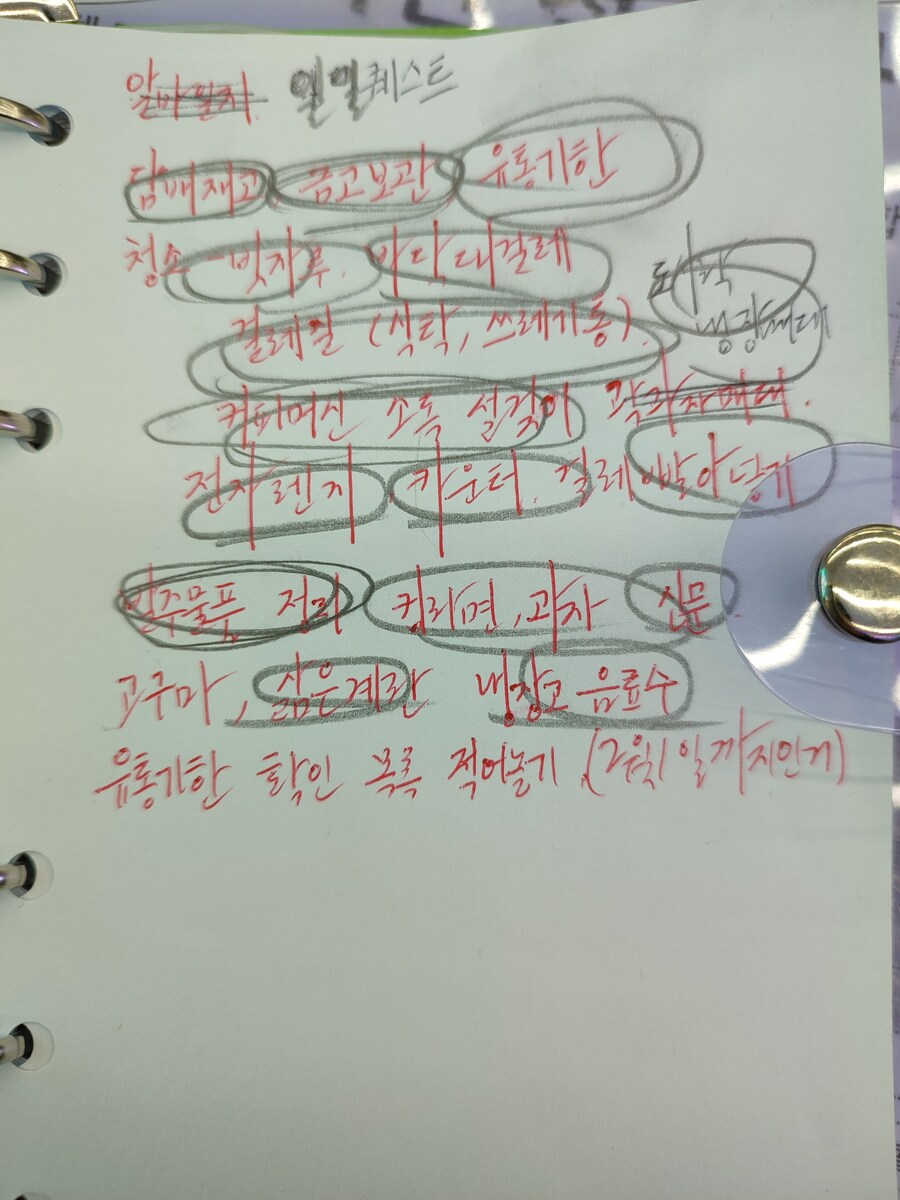 알바일지 일일퀘스트
담배재고, 금고보관, 유통기한
청소 - 빗자루. 바닥대걸레
도시락
냉장매대
걸레질 (식탁, 쓰레기통).
커피머신 소독 설겆이 과자매대.
전자렌지, 카운터. 걸레 빨아 널기
물품 정리 컵라면, 과자 신문
고구마, 삶은계란 냉장고 음료수
유통기한 확인 목록 적어놓기 (2월1일까지인거)